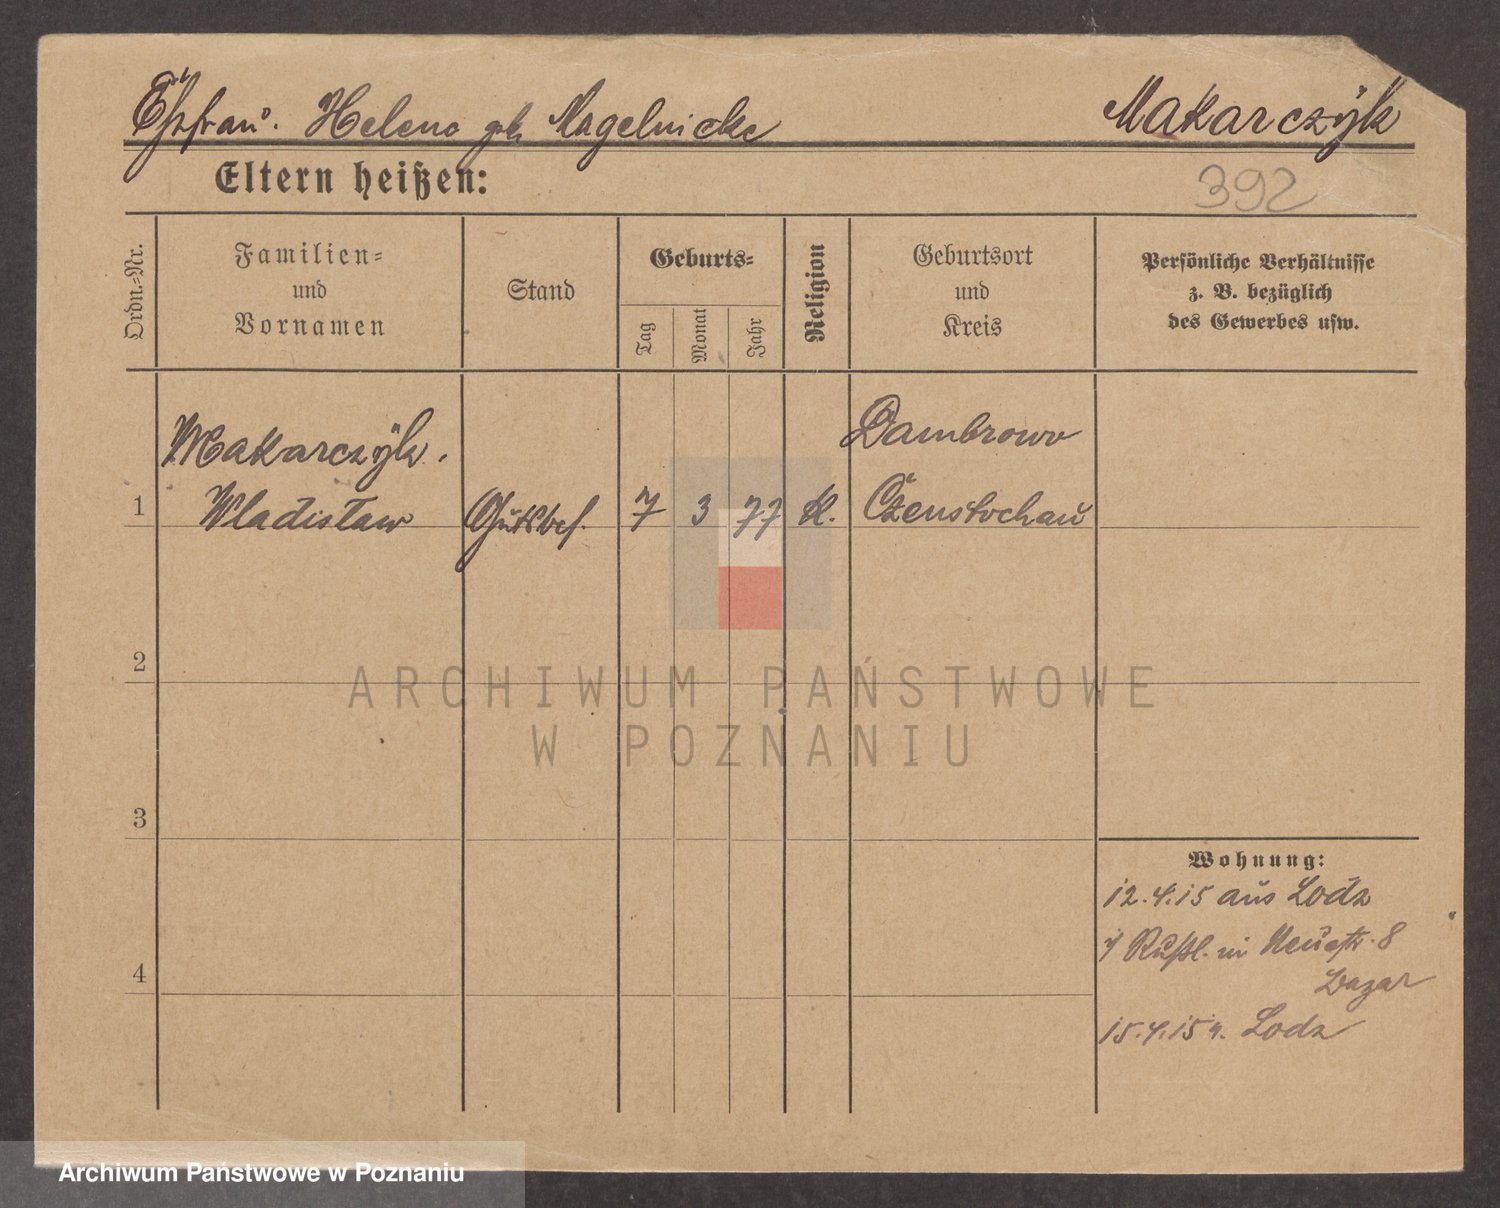 Ehefrau. Helene geb. Nagelnicke Makarczyk
Eltern heißen:
392
Ordn.-Nr.
Familien-
und
Vornamen
Stand
Geburts-
Tag
Monat
Jahr
Religion
Geburtsort
und
Kreis
Persönliche Verhältnisse
z. B. bezüglich
des Gewerbes usw.
Makarczyk.
Dambrowo
1 Wladislaw Gutsbes. 7 3 77 K. Czenstochau
2
ARCHIWUM PAŃSTWOWE
W POZNANIU
3
Wohnung:
12.4.15 aus Lodz
Rußl. in Neuestr. 8
Bazar
4
15.4.15 n. Lodz
Archiwum Państwowe w Poznaniu